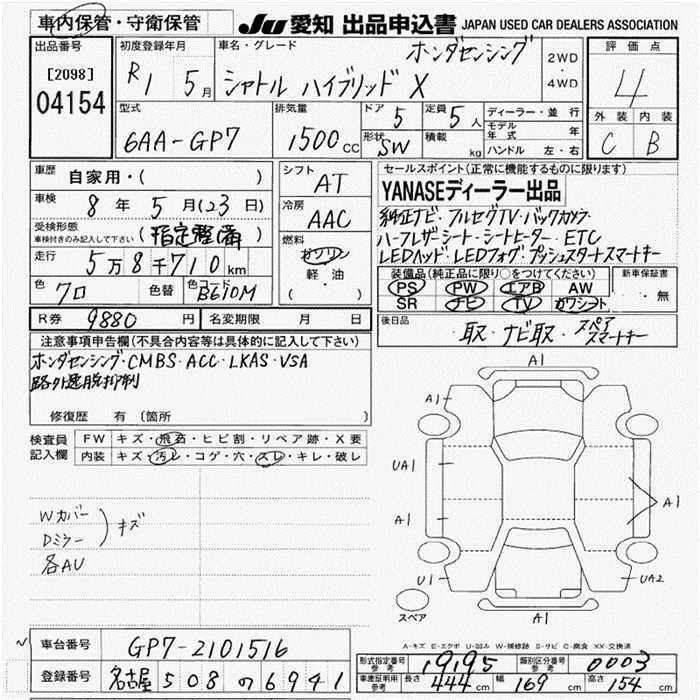 車内保管・守衛保管 JU 愛知 出品申込書 JAPAN USED CAR DEALERS ASSOCIATION
出品番号 [2098] 04154
初度登録年月 R1 5月
車名・グレード ホンダセンシング シャトル ハイブリッド X 2WD・4WD
評価点 4
外装 C 内装 B
型式 6AA-GP7
排気量 1500cc
ドア 5 形状 SW
定員 5人 積載 kg
ディーラー・並行
モデル年式 年
ハンドル 左・右
車歴 自家用・( )
車検 8年 5月(23日)
受検形態 車検付きのみ記入して下さい (指定整備)
走行 5万8千710km
色 クロ 色替 色コード B610M
シフト AT
冷房 AAC
燃料 ガソリン 軽油 ( )
セールスポイント(正常に機能するものに限ります)
YANASEディーラー出品
純正ナビ・フルセグTV・バックカメラ
ハーフレザーシート・シートヒーター・ETC
LEDヘッド・LEDフォグ・プッシュスタートスマートキー
装備品(純正品に限り○をつけてください) 新車保証書
PS PW エアB AW ・無
SR ナビ TV ガワシート
R券 9880円 名変期限 月 日
後日品 取・ナビ取・スペアスマートキー
注意事項申告欄(不具合内容等は具体的に記入して下さい)
ホンダセンシング・CMBS・ACC・LKAS・VSA
路外逸脱抑制
修復歴 有(箇所 )
検査員記入欄 FW キズ・飛石・ヒビ割・リペア跡・X要
内装 キズ・汚レ・コゲ・穴・スレ・キレ・破レ
Wカバー
Dミラー )キズ
各AU
A1
A1
UA1
A1 A1
U1 UA2
スペア A1
A-キズ E-エクボ U-凹み W-補修跡 S-サビ C-腐食 XX-交換済
車台番号 GP7-2101516
登録番号 名古屋 508 の 6941
形式指定番号 参考 19195 類別区分番号 参考 0003
車庫証明用 参考 長さ 444cm 幅 169cm 高さ 154cm